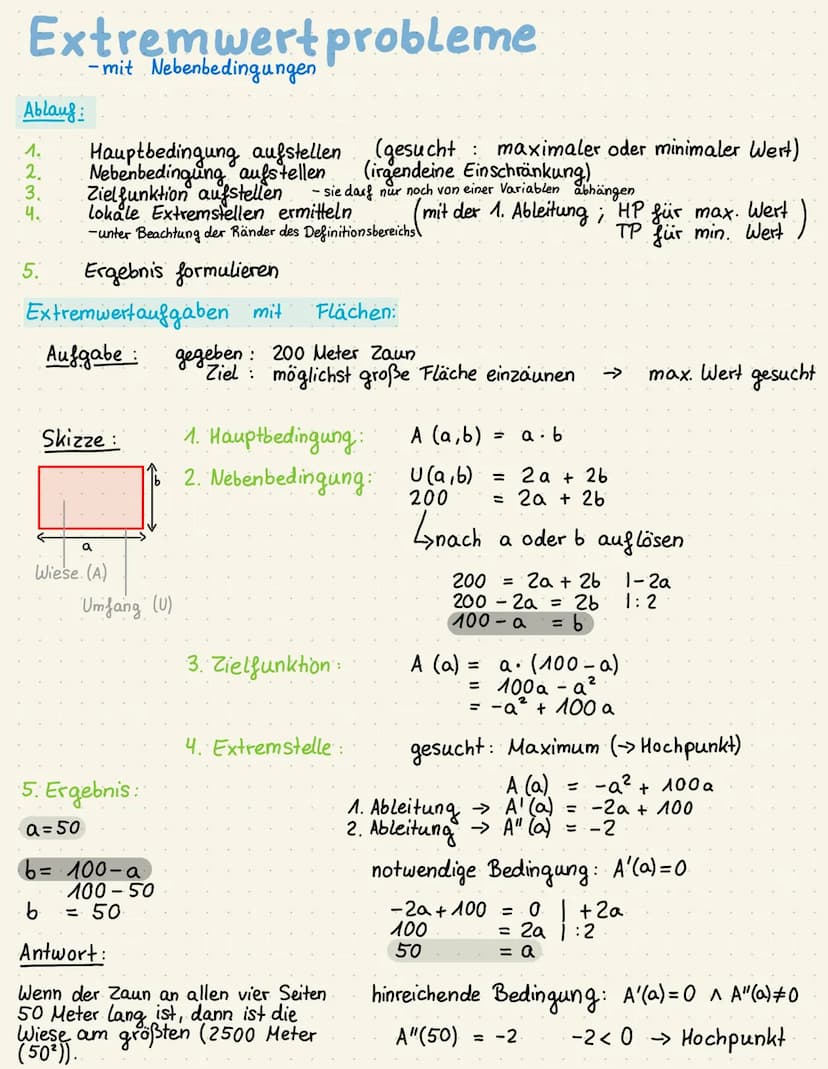 Extremwertprobleme
-mit Nebenbedingungen
Ablauf:
1. Hauptbedingung aufstellen (gesucht : maximaler oder minimaler Wert)
2. Nebenbedingung aufstellen (irgendeine Einschränkung)
3. Zielfunktion aufstellen - sie darf nur noch von einer Variablen abhängen
4. lokale Extremstellen ermitteln (mit der 1. Ableitung ; HP für max. Wert
-unter Beachtung der Ränder des Definitionsbereichs TP für min. Wert )
5. Ergebnis formulieren
Extremwertaufgaben mit Flächen:
Aufgabe : gegeben : 200 Meter Zaun
Ziel : möglichst große Fläche einzäunen → max. Wert gesucht
Skizze :
b
a
Wiese (A)
Umfang (U)
1. Hauptbedingung: A (a,b) = a · b
2. Nebenbedingung: U (a,b) = 2a + 2b
200 = 2a + 2b
↳nach a oder b auflösen
200 = 2a + 2b |-2a
200 - 2a = 2b |: 2
100 - a = b
3. Zielfunktion : A (a) = a · (100 - a)
= 100a - a²
= -a² + 100 a
4. Extremstelle : gesucht: Maximum (→ Hochpunkt)
A (a) = -a² + 100a
1. Ableitung → A'(a) = -2a + 100
2. Ableitung → A"(a) = -2
notwendige Bedingung: A'(a)=0
-2a + 100 = 0 | +2a
100 = 2a | :2
50 = a
hinreichende Bedingung: A'(a)=0 ∧ A"(a)≠0
A"(50) = -2 -2 < 0 → Hochpunkt
5. Ergebnis:
a=50
b= 100-a
100 - 50
b = 50
Antwort:
Wenn der Zaun an allen vier Seiten
50 Meter lang ist, dann ist die
Wiese am größten (2500 Meter
(50²)).